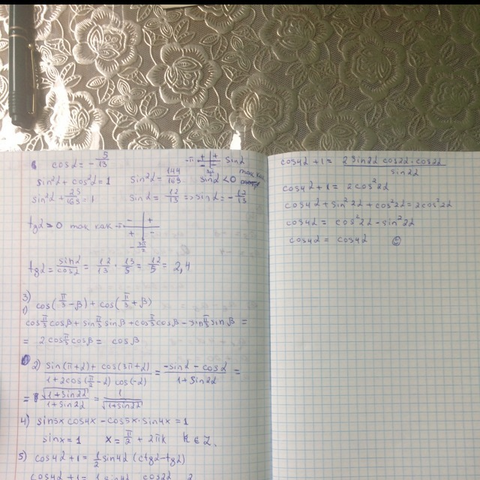 cosα = -5/13
sin²α + cos²α = 1
sin²α = 144/169
sinα < 0
sin²α + 25/169 = 1
sinα = 12/13 => sinα = -12/13
tgα > 0 так как
tgα = sinα/cosα = 12/13 · 13/5 = 12/5 = 2,4
3)
1) cos(π/3 - β) + cos(π/3 + β)
cos π/3 cosβ + sin π/3 sinβ + cos π/3 cosβ - sin π/3 sinβ =
= 2cos π/3 cosβ = cosβ
2) sin(π+α) + cos(3π+α) / 1+2cos(π/2-α) cos(-α) = -sinα - cosα / 1+sin2α =
√1+sin2α / 1+sin2α = 1/√1+sin2α
4) sin5x cos4x - cos5x · sin4x = 1
sinx = 1 x = π/2 + 2πk k ∈ Z.
5) cos4α + 1 = 1/2 sin4α (ctgα - tgα)
cos4α + 1 = 1/2 sin4α cos2α 2
cos4α + 1 = 2 sin2α cos2α · cos2α / sin2α
cos4α + 1 = 2cos²2α
cos4α + sin²2α + cos²2α = 2cos²2α
cos4α = cos²2α - sin²2α
cos4α = cos4α